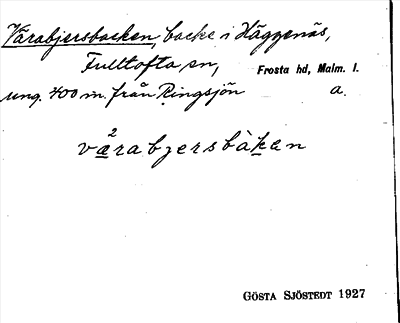 Vårabjersbacken, backe i Häggenäs,
Fulltofta sn, Frosta hd, Malm. l.
ung. 400 m. från Ringsjön a.
2
vårabjersbàkan
GÖSTA SJÖSTEDT 1927